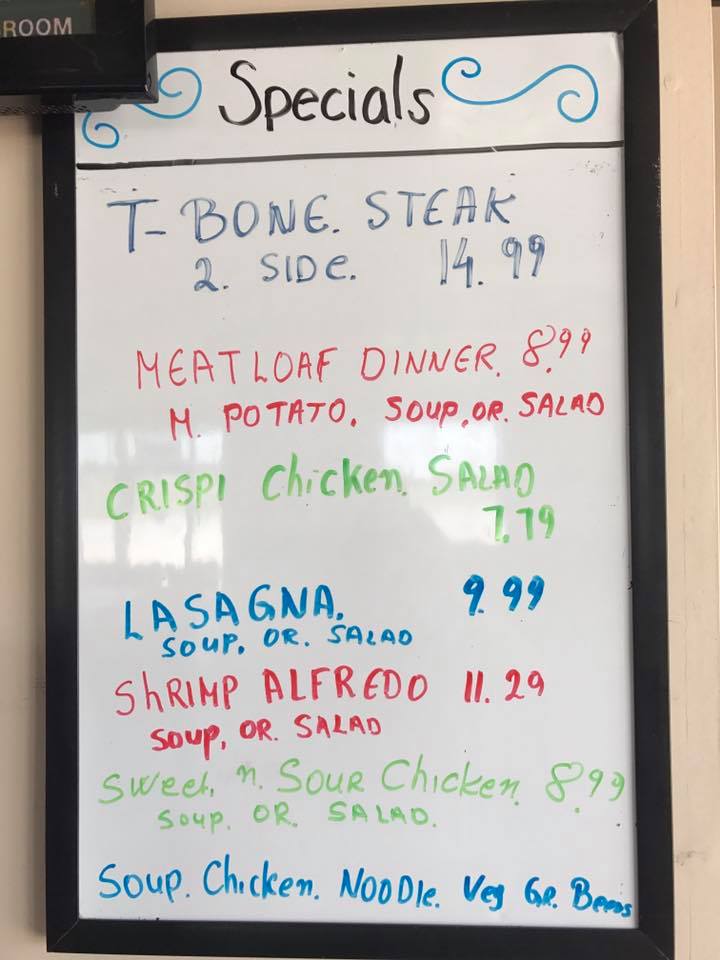 ROOM
Specials
T-BONE. STEAK
2. SIDE. 14.99
MEATLOAF DINNER. 8.99
M. POTATO. SOUP, OR. SALAD
CRISPI Chicken. SALAD
7.79
LASAGNA. 9.99
SOUP. OR. SALAD
ShRIMP ALFREDO 11.29
SOUP, OR. SALAD
Sweet. n. Sour Chicken. 8.99
Soup. OR. SALAD.
Soup. Chicken. NOODle. Veg GR. Beens